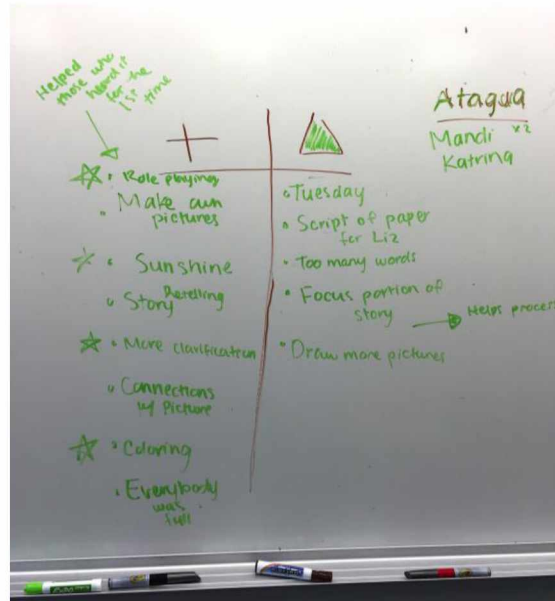 Helped
those who
heard it
for the
1st
time
+
Role playing
Make own
pictures
Sunshine
Story Retelling
More clarification
Connections
w/ Picture
Coloring
Everybody
was
full
Tuesday
Script of paper
for Liz
Too many words
Focus portion of
story
Helps process
Draw more pictures
Atagua
Mandi x2
Katrina